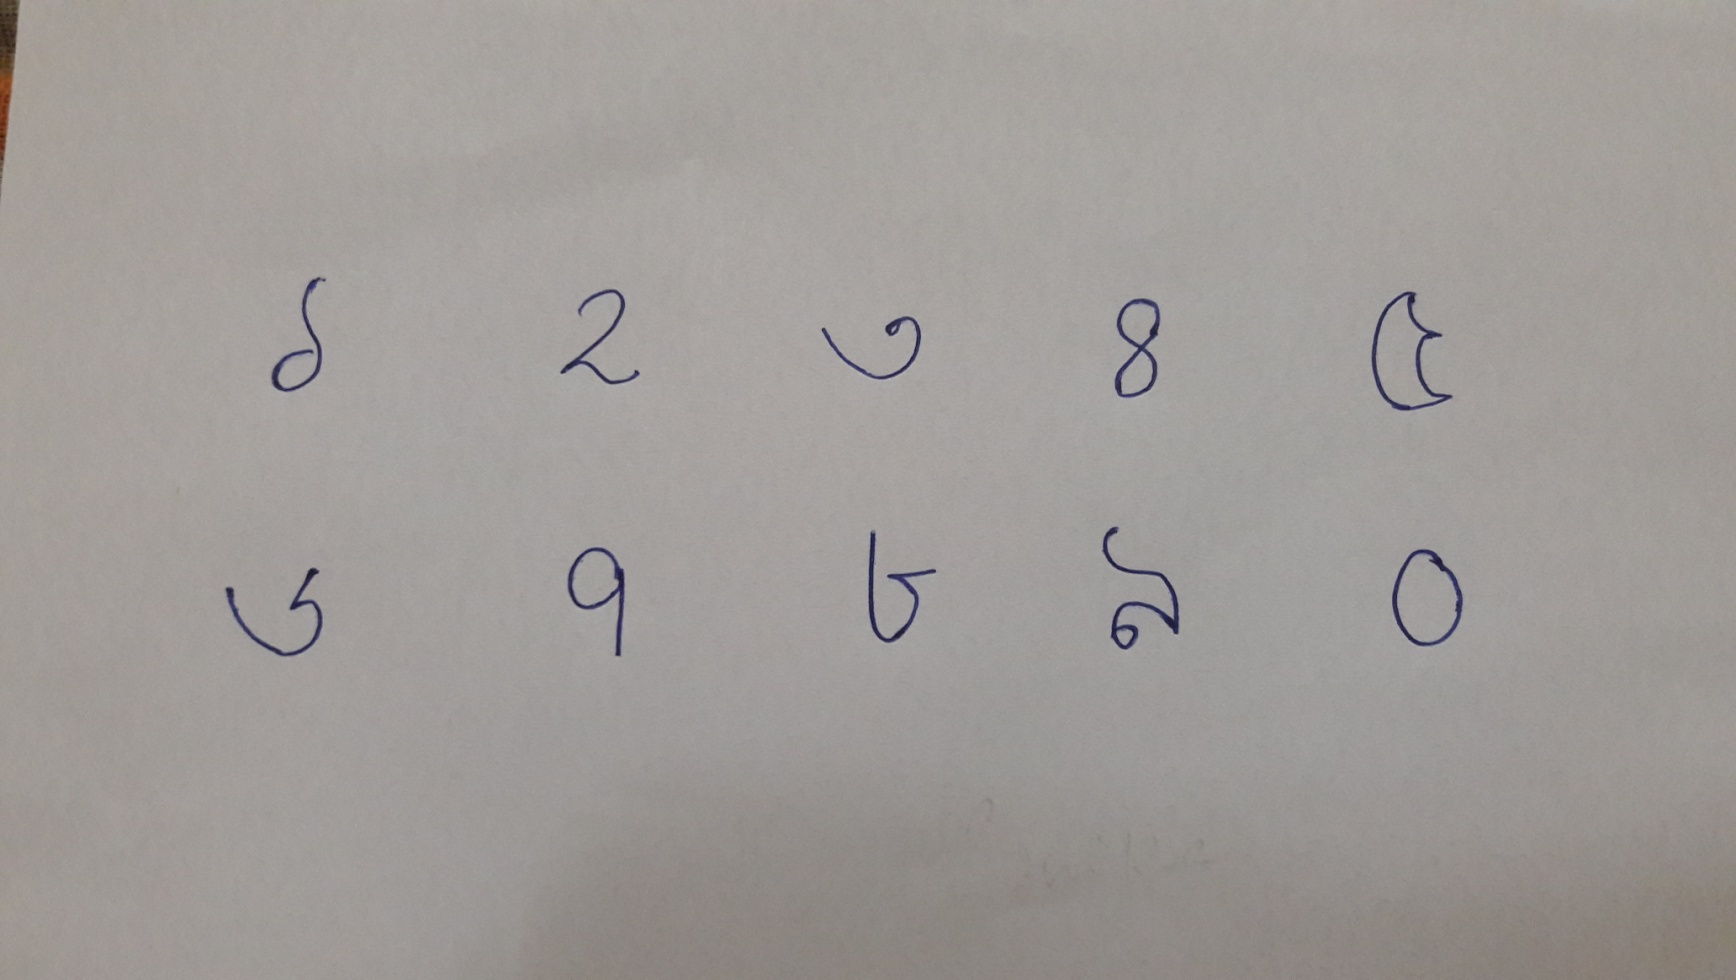 ১ ২ ৩ ৪ ৫
৬ ৭ ৮ ৯ ০